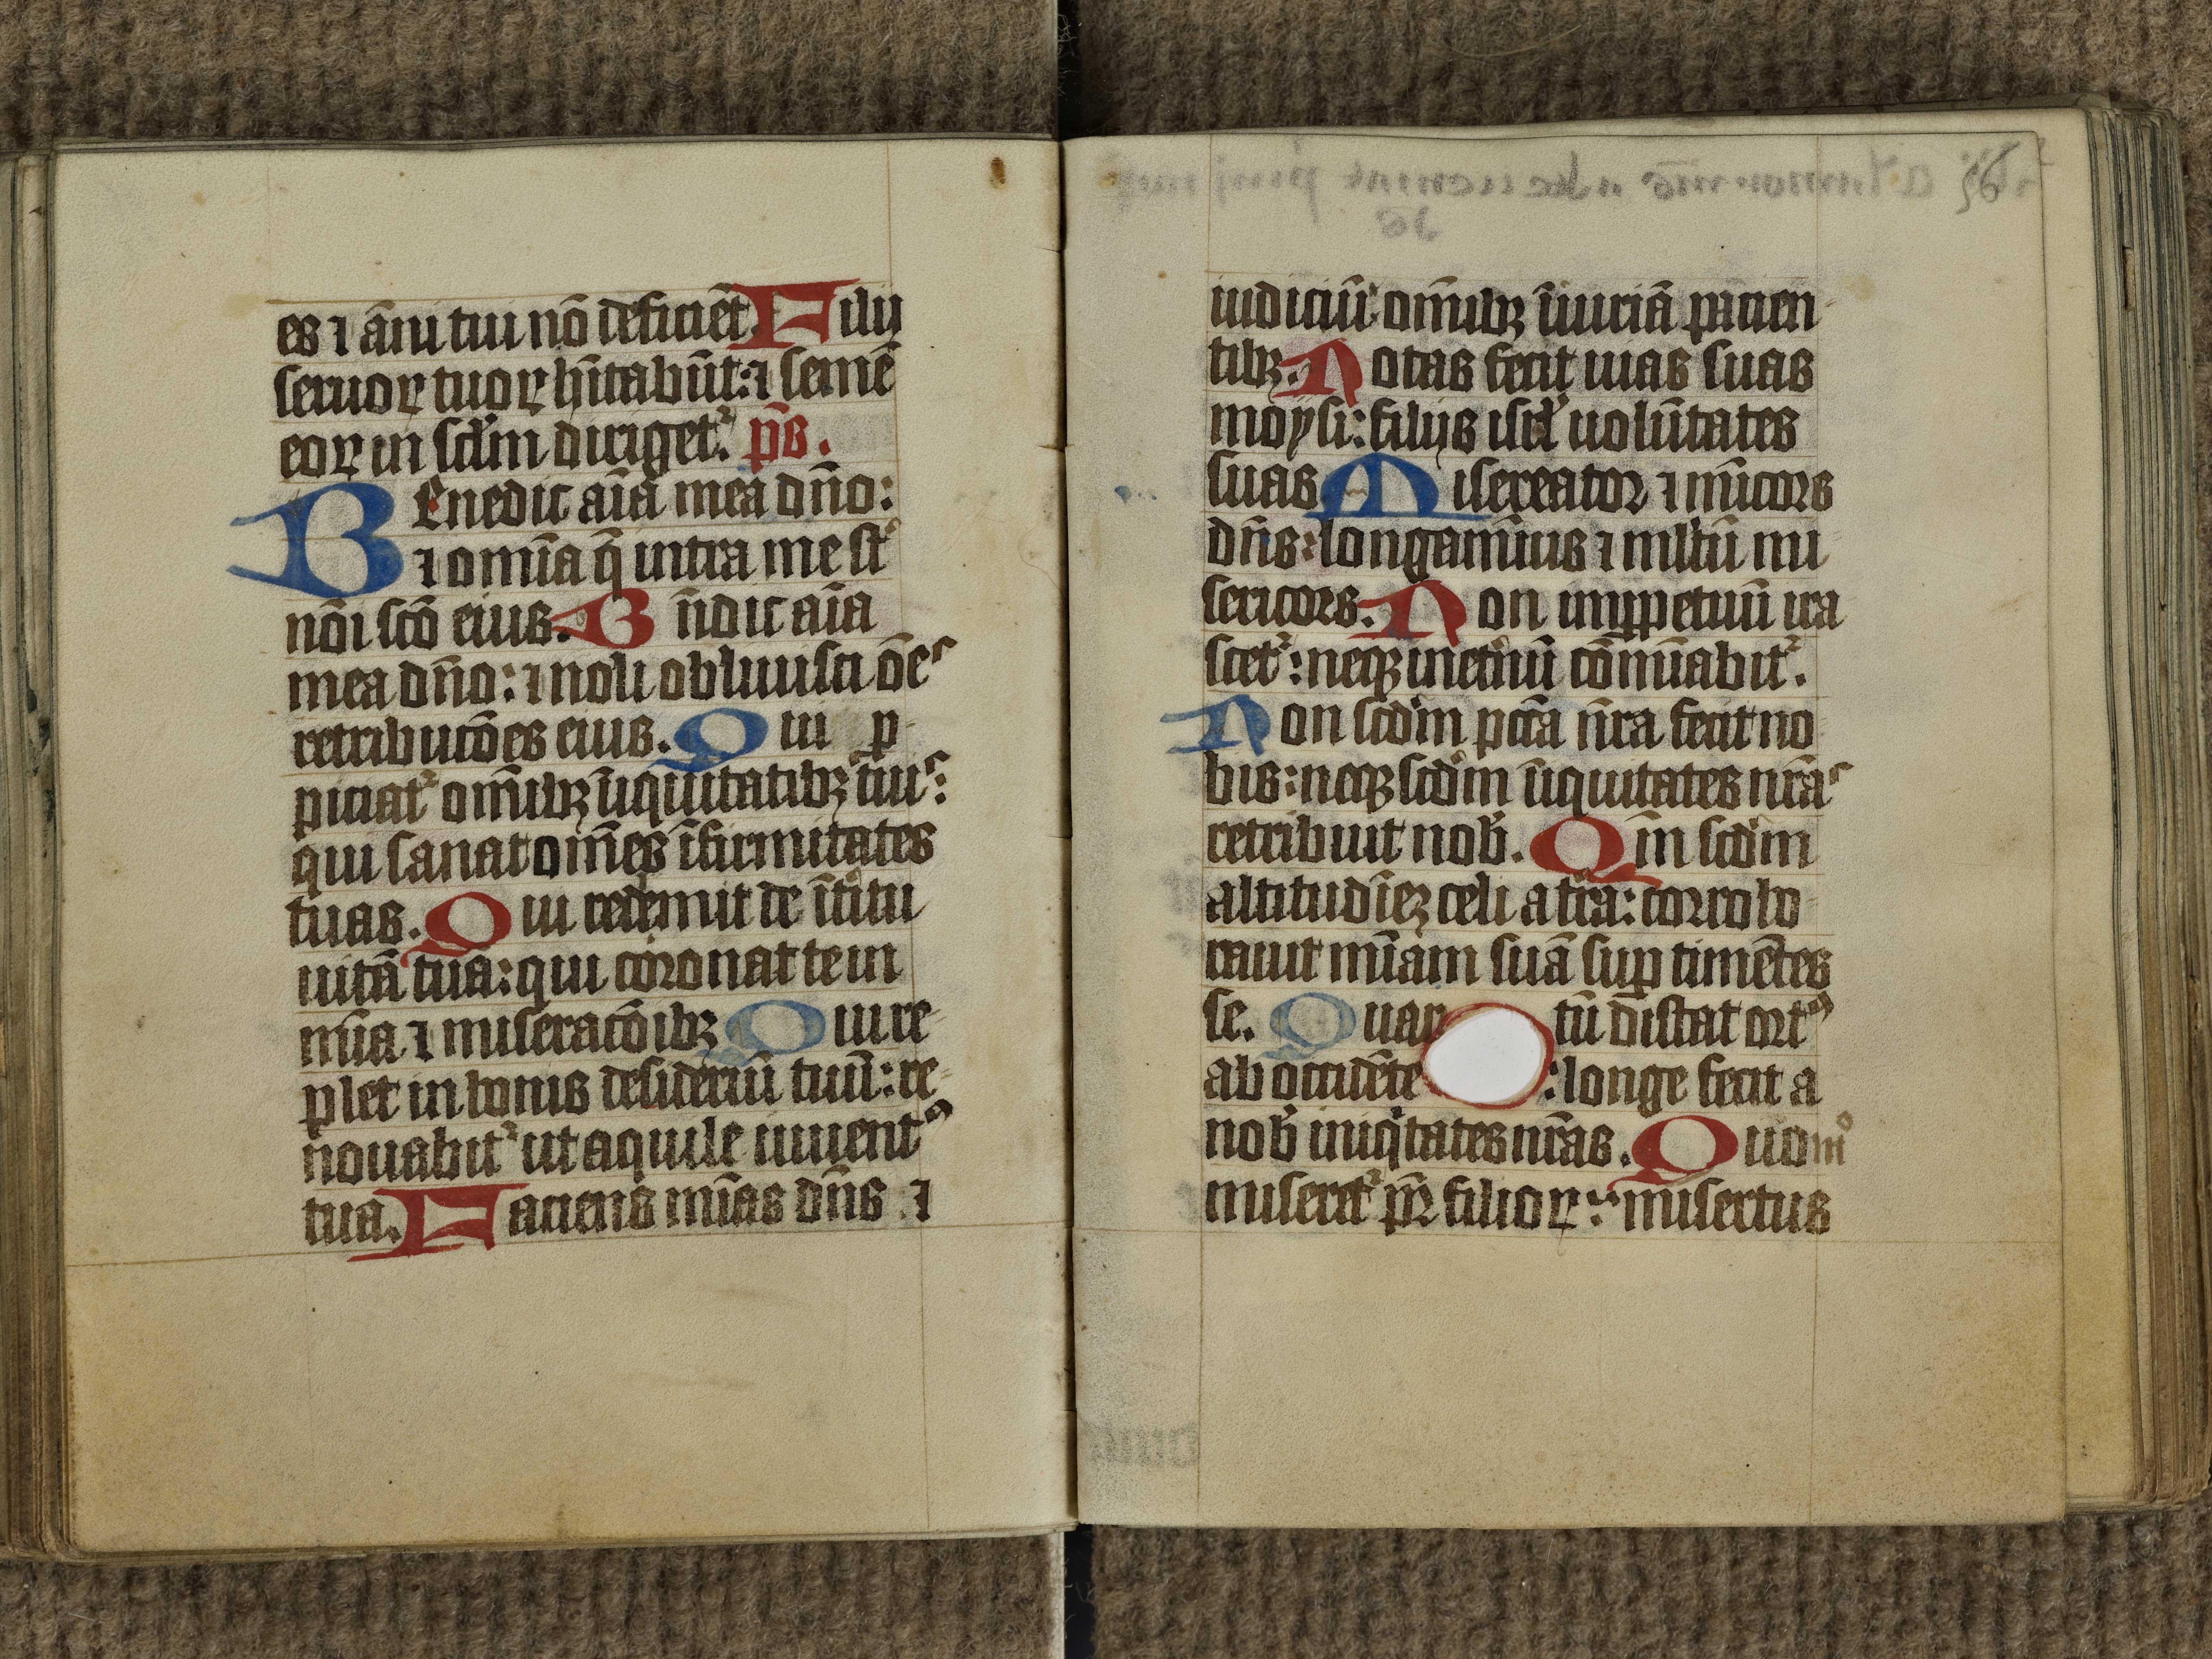 es ⁊ an̄i tui nō deficiēt Filij
seruoꝝ tuoꝝ hītabūt: ⁊ semē
eoꝝ in sclm̄ dirigetᷣ. p̄s.
Benedic aīa mea dn̄o:
⁊ om̄ia q̄ intra me st̄
nōi sc̄o eius. Bn̄dic aīa
mea dn̄o: ⁊ noli obliuisci ōēs
retribucōēs eius. Qui p-
piciatᷣ om̄ibꝫ īiquitatibꝫ tuis:
qui sanat om̄es īfirmitates
tuas. Qui redemit de īt̄itu
uitā tuā: qui coronat te in
mīa ⁊ miseracōibꝫ Qui re-
plet in bonis desideriū tuū: re-
nouabitᷣ ut aquile iuuentꝰ
tua. Faciens mīas dn̄s ⁊
iudiciū om̄ibꝫ īiuriā pacien-
tibꝫ. Notas fecit uias suas
moysi: filijs isrł uolūtates
suas Misereator ⁊ mīcors
dn̄s: longanīmis ⁊ mltū mi
sericors. Non inꝑpetuū ira
scetᷣ: neqꝫ inet̄nū cōmīabitᷣ.
Non scdm̄ pcc̄a nr̄a fecit no
bis: neqꝫ scdm̄ īiquitates nr̄as
retribuit nob̄. Qm̄ scdm̄
altitudīeꝫ celi a tr̄a: corrobo-
rauit mīam suā suꝑ timētes
se. Quan tū distat ortꝰ
ab occidēte : longe fecit a
nob̄ iniqͥtates nr̄as. Quomᵒ
miseretᷣ pr̄ filioꝝ: misertus